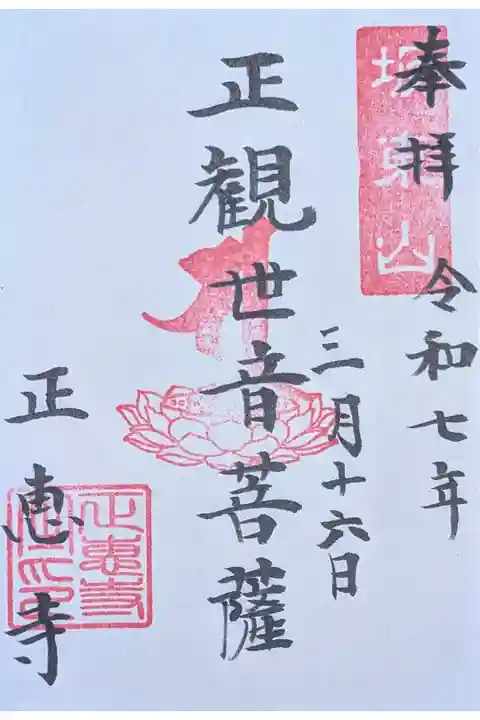 奉拝 令和七年
三月十六日
城東山
正観世音菩薩
正恵寺
正恵寺